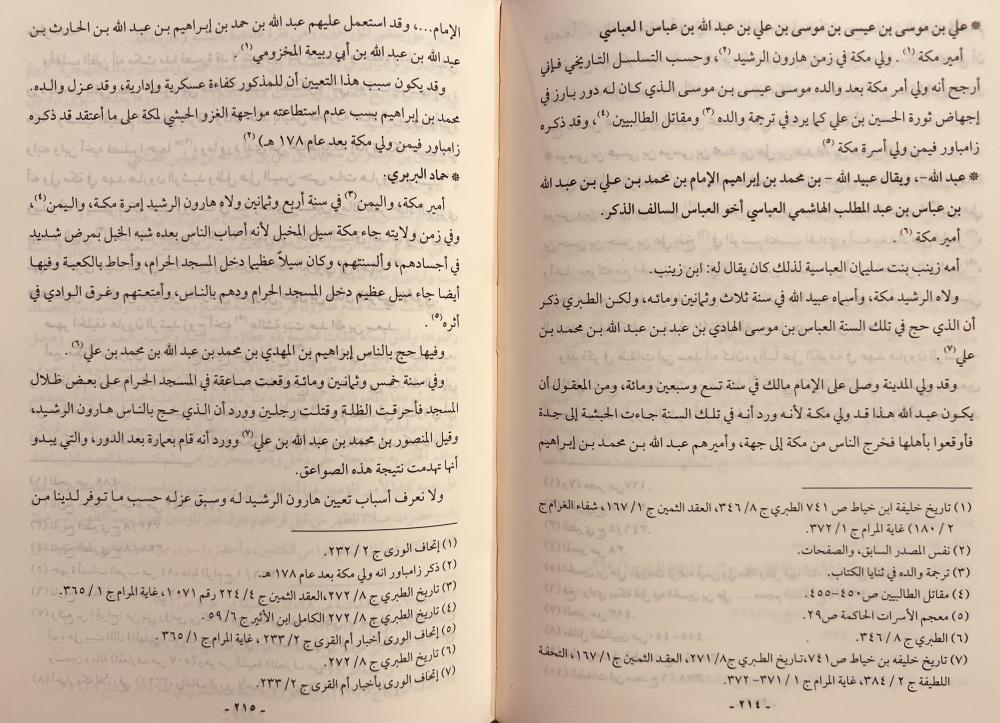 * علي بن موسى بن عيسى بن موسى بن علي بن عبد الله بن عباس العباسي
أمير مكة (١). ولي مكة في زمن هارون الرشيد (٢)، وحسب التسلسل التاريخي فإني
أرجح أنه ولي أمر مكة بعد والده موسى عيسى بن موسى الذي كان له دور بارز في
إجهاض ثورة الحسين بن علي كما يرد في ترجمة والده (٣) ومقاتل الطالبيين (٤)، وقد ذكره
زامباور فيمن ولي أسرة مكة (٥)
* عبد الله–، ويقال عبيد الله – بن محمد بن إبراهيم الإمام بن محمد بن علي بن عبد الله
بن عباس بن عبد المطلب الهاشمي العباسي أخو العباس السالف الذكر.
أمير مكة (٦).
أمه زينب بنت سليمان العباسية لذلك كان يقال له: ابن زينب.
ولاه الرشيد مكة، وأسماه عبيد الله في سنة ثلاث وثمانين ومائه، ولكن الطبري ذكر
أن الذي حج في تلك السنة العباس بن موسى الهادي بن عبد بن عبد الله بن محمد بن
علي(٧).
وقد ولي المدينة وصلى على الإمام مالك في سنة تسع وسبعين ومائة، ومن المعقول أن
يكون عبد الله هذا قد ولي مكة لأنه ورد أنه في تلك السنة جاءت الحبشة إلى جدة
فأوقعوا بأهلها فخرج الناس من مكة إلى جهة، وأميرهم عبد الله بن محمد بن إبراهيم
(١) تاريخ خليفة ابن خياط ص ٧٤١ الطبري ج ٨/ ٣٤٦، العقد الثمين ج ١/ ١٦٧، شفاء الغرام ج
٢/ ١٨٠) غاية المرام ج ١/ ٣٧٢.
(٢) نفس المصدر السابق، والصفحات.
(٣) ترجمة والده في ثنايا الكتاب.
(٤) مقاتل الطالبيين ص ٤٥٠–٤٥٥.
(٥) معجم الأسرات الحاكمة ص٢٩.
(٦) الطبري ج ٨/ ٣٤٦.
(٧) تاريخ خليفه بن خياط ص٧٤١،تاريخ الطبري ج٨/ ٢٧١، العقد الثمين ج١/ ١٦٧، التحفة
اللطيفة ج ٢/ ٣٨٤، غاية المرام ج ١/ ٣٧١– ٣٧٢.
- ٢١٤ -
الإمام...، وقد استعمل عليهم عبد الله بن حمد بن إبراهيم بن عبد الله بن الحارث بن
عبد الله بن عبد الله بن أبي ربيعة المخزومي(١).
وقد يكون سبب هذا التعيين أن للمذكور كفاءة عسكرية وإدارية، وقد عزل والده.
محمد بن إبراهيم بسبب عدم استطاعته مواجهة الغزو الحبشي لمكة على ما أعتقد قد ذكره
زامباور فيمن ولي مكة بعد عام ١٧٨ هـ) (٢)
* حماد البربري.
أمير مكة، واليمن(٣) في سنة أربع وثمانين ولاه هارون الرشيد إمرة مكة، واليمن(٤)،
وفي زمن ولايته جاء مكة سيل المخبل لأنه أصاب الناس بعده شبه الخبل بمرض شديد
في أجسادهم، وألسنتهم، وكان سيلاً عظيما دخل المسجد الحرام، وأحاط بالكعبة وفيها
أيضا جاء سيل عظيم دخل المسجد الحرام ودهم بالناس، وأمتعتهم وغرق الوادي في
أثره(٥).
وفيها حج بالناس إبراهيم بن المهدي بن محمد بن عبد الله بن محمد بن علي(٦).
وفي سنة خمس وثمانين ومائة وقعت صاعقة في المسجد الحرام على بعض ظلال
المسجد فأحرقت الظلة وقتلت رجلين وورد أن الذي حج بالناس هارون الرشيد،
وقيل المنصور بن محمد بن عبد الله بن علي(٧) وورد أنه قام بعمارة بعد الدور، والتي يبدو
أنها تهدمت نتيجة هذه الصواعق.
ولا نعرف أسباب تعيين هارون الرشيد له وسبق عزله حسب ما توفر لدينا من
(١) إتحاف الورى ج ٢/ ٢٣٢.
(٢) ذكر زامباور انه ولي مكة بعد عام ١٧٨ هـ.
(٣) تاريخ الطبري ج ٨/ ٢٧٢،العقد الثمين ج٤/ ٢٢٤ رقم ١٠٧١، غاية المرام ج ١/ ٣٦٥.
(٤) تاريخ الطبري ج ٨/ ٢٧٢ الكامل ابن الأثير ج ٦/ ٥٩.
(٥) إتحاف الورى أخبار أم القرى ج ٢/ ٢٣٣، غاية المرام ج ١/ ٣٦٥.
(٦) تاريخ الطبري ج ٨/ ٢٧٢.
(٧) إتحاف الورى بأخبار أم القرى ج ٢/ ٢٣٣.
- ٢١٥ -